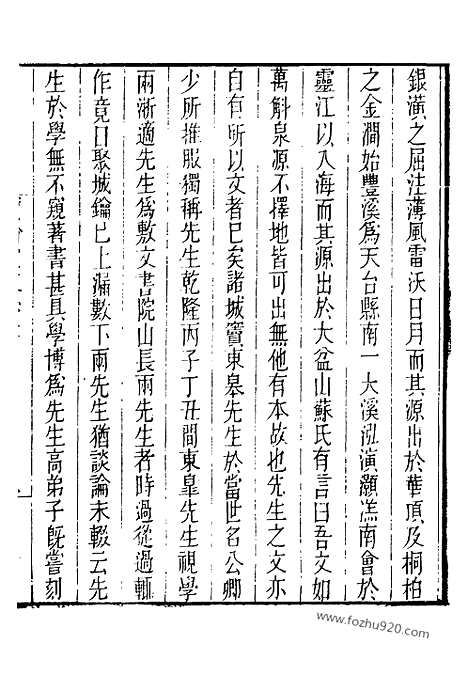 銀潢之屈注薄風雷沃日月而其源出於華頂及桐柏
之金澗始豐溪爲天台縣南一大溪泓演灝溔南會於
靈江以入海而其源出於大盆山蘇氏有言曰吾文如
萬斛泉源不擇地皆可出無他有本故也先生之文亦
自有所以文者已矣諸城竇東皋先生於當世名公卿
少所推服獨稱先生乾隆丙子丁丑間東皋先生視學
兩浙適先生爲敷文書院山長兩先生者時過從過輒
作竟日聚城鑰已上漏數下兩先生猶談論未輟云先
生於學無不窺著書甚具學博爲先生高弟子旣嘗刻
www.fozhu920.com